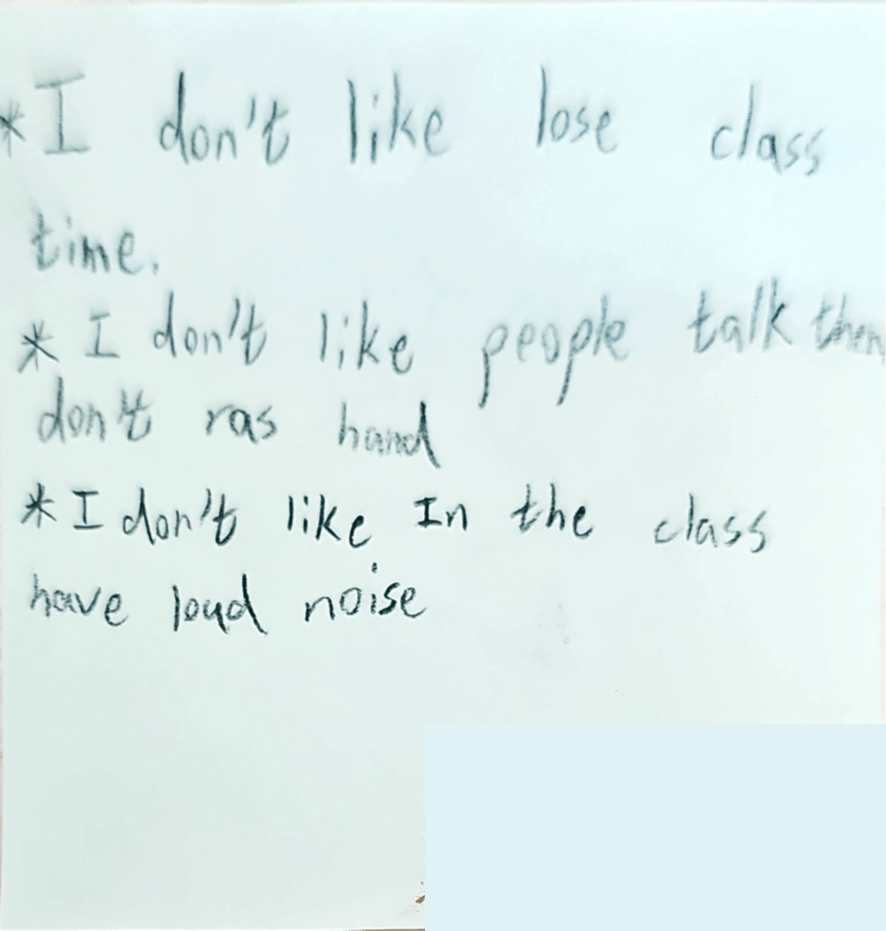 *I don't like lose class
time.
* I don't like people talk then
don't ras hand
* I don't like In the class
have loud noise